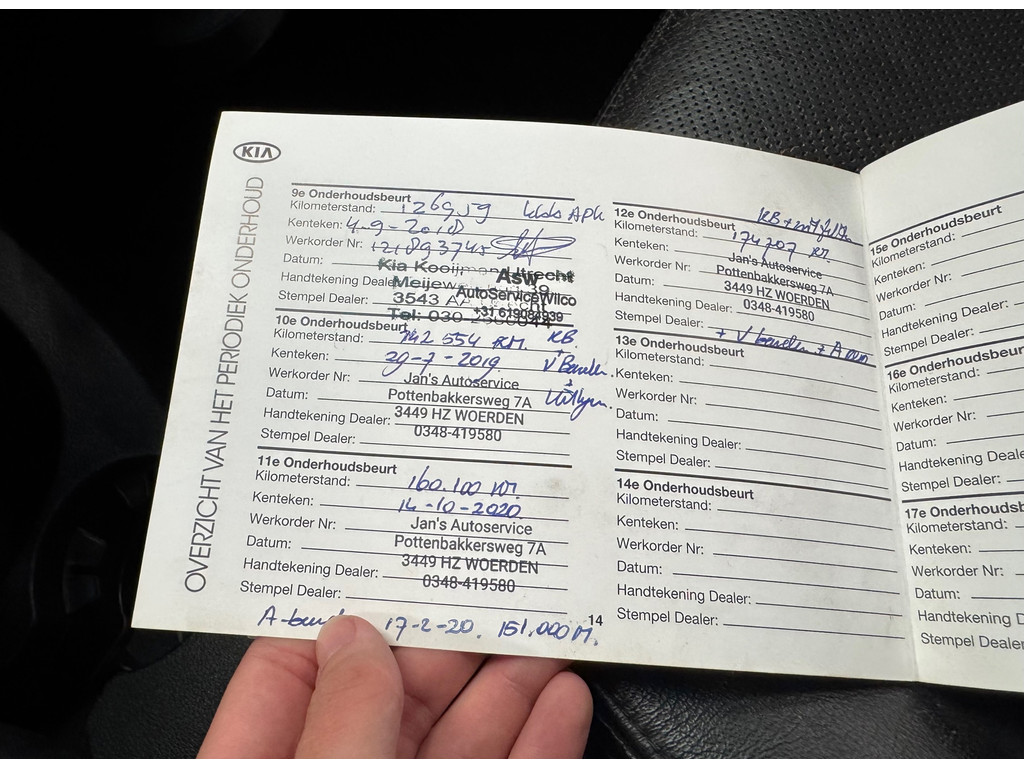 KIA
OVERZICHT VAN HET PERIODIEK ONDERHOUD
9e Onderhoudsbeurt
Kilometerstand: 126959
Kenteken: 4-9-2018
Werkorder Nr:
Datum: Kia Kooijman
Handtekening Dealer:
Stempel Dealer: 3543
Tel: 030
Asw
AutoServiceWilco
+31 619084939
10e Onderhoudsbeurt
Kilometerstand: 142 554 KM. KB.
Kenteken: 29-7-2019
Werkorder Nr: Jan's Autoservice
Datum: Pottenbakkersweg 7A
Handtekening Dealer: 3449 HZ WOERDEN
Stempel Dealer: 0348-419580
11e Onderhoudsbeurt
Kilometerstand: 160.100 KM.
Kenteken: 14-10-2020
Werkorder Nr: Jan's Autoservice
Datum: Pottenbakkersweg 7A
Handtekening Dealer: 3449 HZ WOERDEN
Stempel Dealer: 0348-419580
17-2-20. 151.000 M.
14
12e Onderhoudsbeurt
Kilometerstand: 174207 KM.
Kenteken: Jan's Autoservice
Werkorder Nr: Pottenbakkersweg 7A
Datum: 3449 HZ WOERDEN
Handtekening Dealer: 0348-419580
Stempel Dealer:
13e Onderhoudsbeurt
Kilometerstand:
Kenteken:
Werkorder Nr:
Datum:
Handtekening Dealer:
Stempel Dealer:
14e Onderhoudsbeurt
Kilometerstand:
Kenteken:
Werkorder Nr:
Datum:
Handtekening Dealer:
Stempel Dealer:
15e Onderhoudsbeurt
Kilometerstand:
Kenteken:
Werkorder Nr:
Datum:
Handtekening Dealer:
Stempel Dealer:
16e Onderhoudsbeur
Kilometerstand:
Kenteken:
Werkorder Nr:
Datum:
Handtekening Deale
Stempel Dealer:
17e Onderhoudsb
Kilometerstand:
Kenteken:
Werkorder Nr:
Datum:
Handtekening D
Stempel Dealer